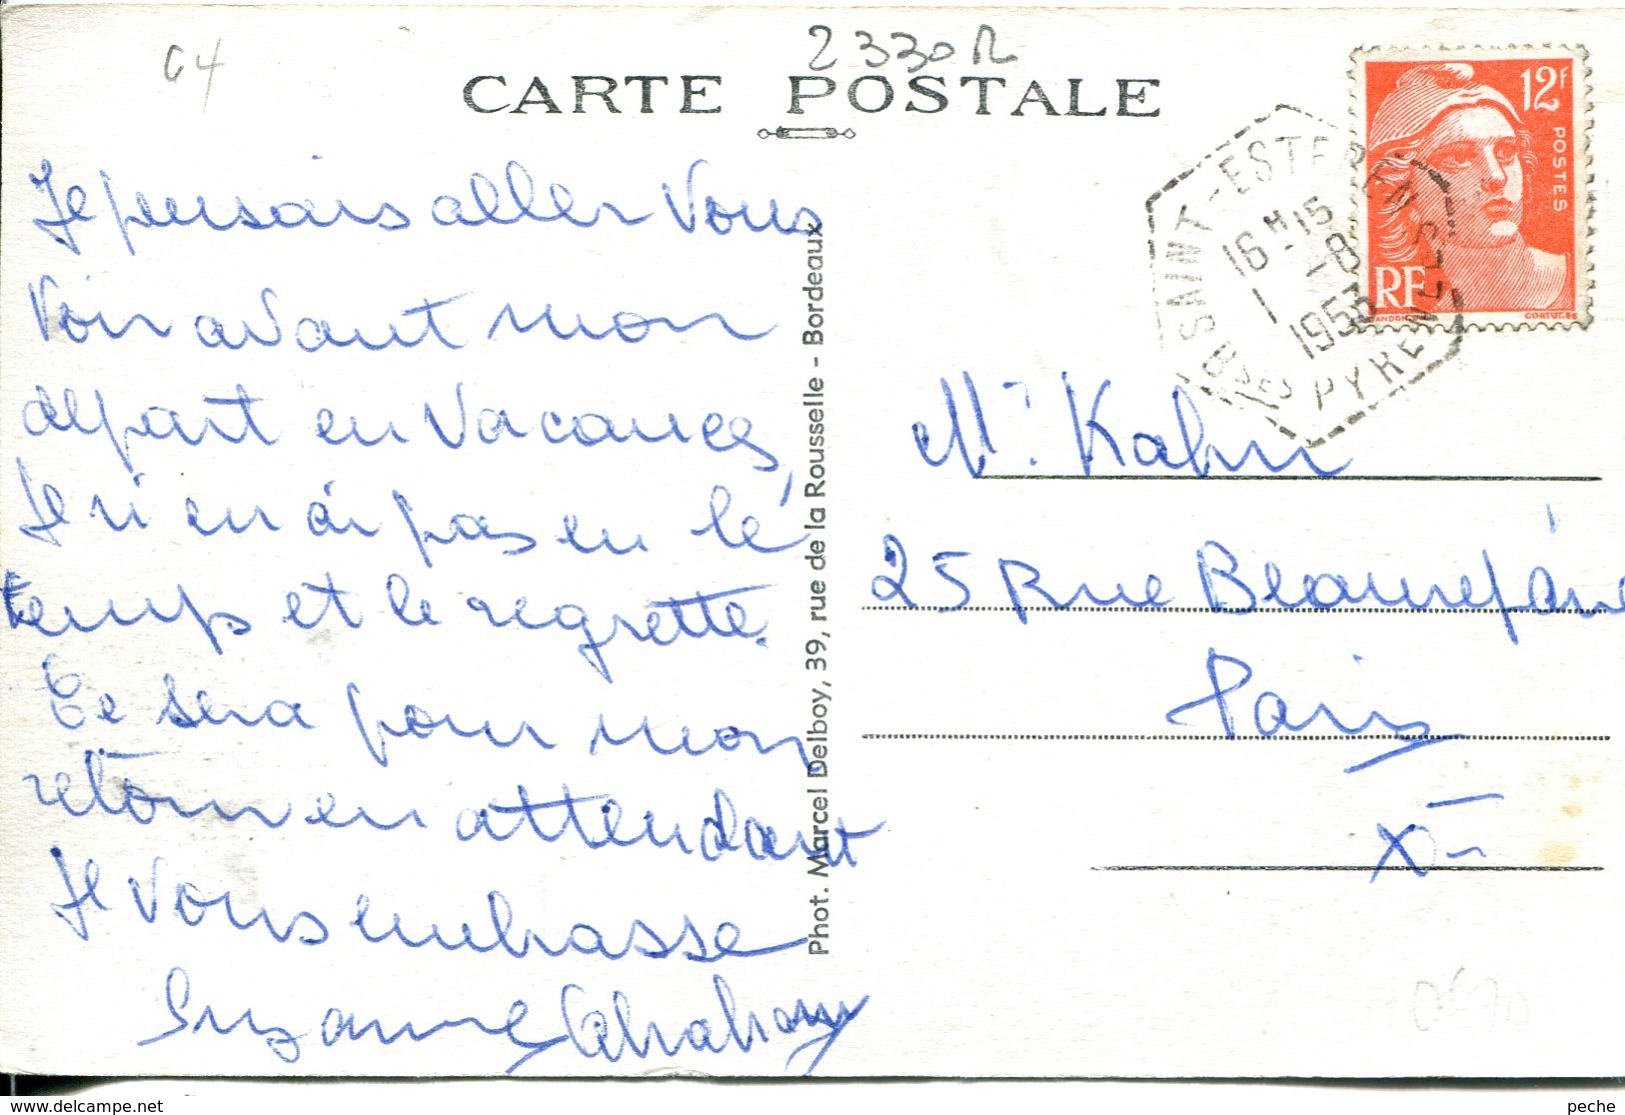 64
2330R
CARTE POSTALE
12F
POSTES
RF
GANDON
CORTOT. SC
SAINT-ESTEBEN
16 H 15
1-8
1953
BSES PYRENEES
Je pensais aller Vous
Voir avant mon
départ en vacances,
Je n'en ai pas eu lé
temps et le regrette.
Ce sera pour mon
retour en attendant
Je Vous embrasse
Suzanne
Phot. Marcel Delboy, 39, rue de la Rousselle - Bordeaux
Mr Kahn
25 Rue Beaurepaire
Paris
Xe
peche delcampe.net